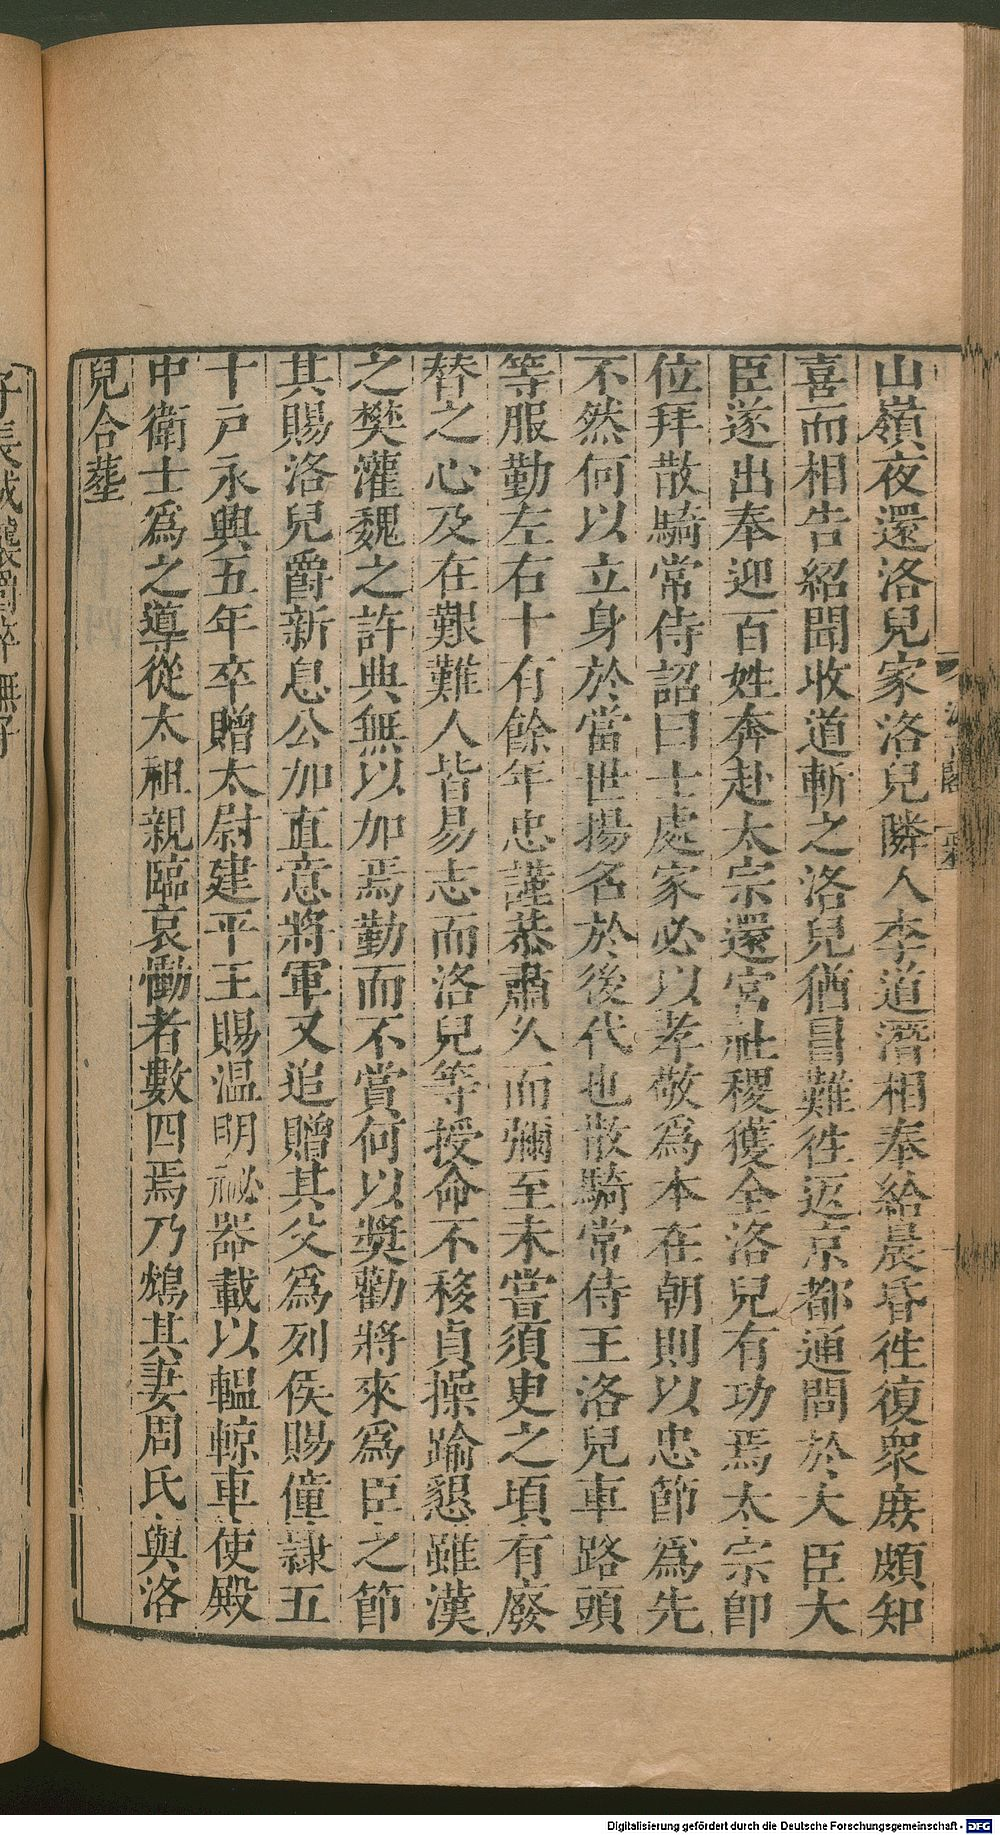 山嶺夜還洛兒家洛兒隣人李道潛相奉給晨昏徃復衆庶頗知
喜而相告紹聞收道斬之洛兒猶冒難徃返京都通問於大臣大
臣遂出奉迎百姓奔赴太宗還宮社稷獲全洛兒有功焉太宗卽
位拜散騎常侍詔曰士處家必以孝敬爲本在朝則以忠節爲先
不然何以立身於當世揚名於後代也散騎常侍王洛兒車路頭
等服勤左右十有餘年忠謹恭肅久而彌至未嘗須臾之頃有廢
替之心及在艱難人皆易志而洛兒等授命不移貞操踰懇雖漢
之樊灌魏之許典無以加焉勤而不賞何以奬勸將來爲臣之節
其賜洛兒爵新息公加直意將軍又追贈其父爲列侯賜僮隷五
十戶永興五年卒贈太尉建平王賜温明祕器載以轀輬車使殿
中衛士爲之導從太祖親臨哀慟者數四焉乃鴆其妻周氏與洛
兒合葬
子長城襲爵卒無子
Digitalisierung gefördert durch die Deutsche Forschungsgemeinschaft - DFG